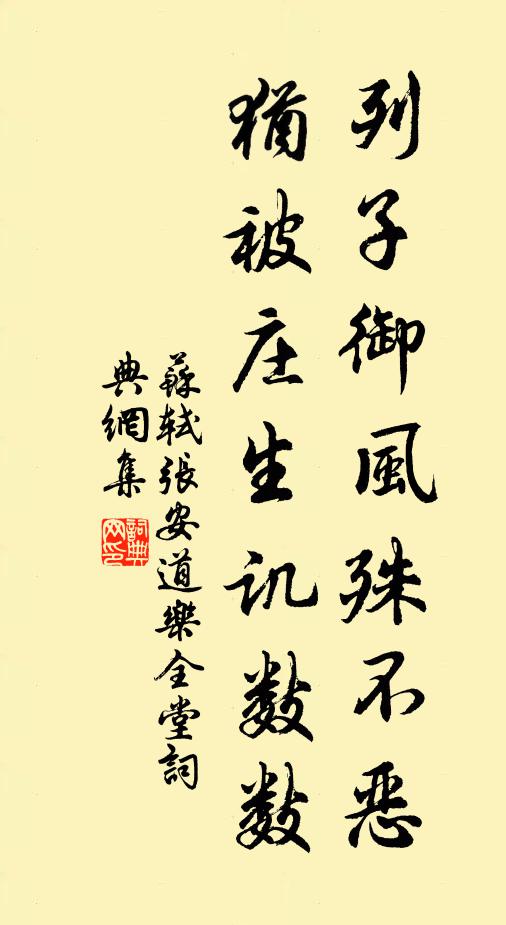 列子御風殊不恶
猶被庄生讥數數
蘇軾張安道樂全堂詞
典網集
詞典網印